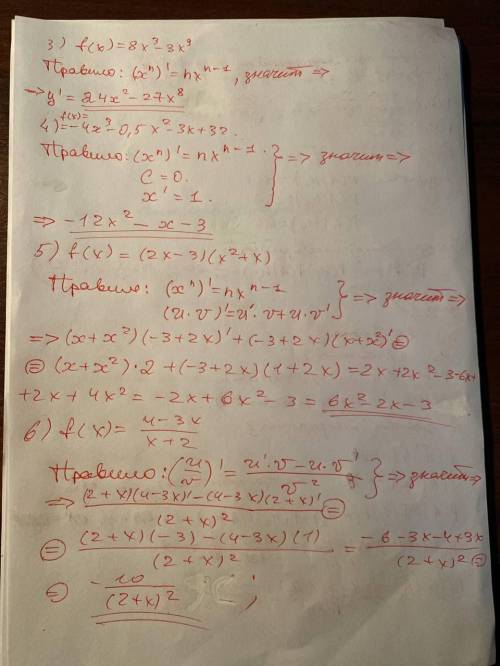 3) f(x)=8x³-3x⁹
Правило: (xⁿ)'=nxⁿ⁻¹, значит =>
=> y'=24x²-27x⁸
4) f(x)= -4x³-0,5x²-3x+32.
Правило: (xⁿ)'=nxⁿ⁻¹. } => значит =>
C=0.
x'=1.
=> -12x²-x-3
5) f(x)=(2x-3)(x²+x)
Правило: (xⁿ)'=nxⁿ⁻¹ } => значит =>
(u·v)'=u'·v+u·v'
=> (x+x²)(-3+2x)'+(-3+2x)(x+x²)' =
= (x+x²)·2+(-3+2x)(1+2x)=2x+2x²-3-6x+
+2x+4x²=-2x+6x²-3=6x²-2x-3
6) f(x)=(4-3x)/(x+2)
Правило: (u/v)'=(u'·v-u·v')/v² } => значит =>
=> ((2+x)(4-3x)'-(4-3x)(2+x)')/(2+x)² =
= ((2+x)(-3)-(4-3x)(1))/(2+x)² = (-6-3x-4+3x)/(2+x)² =
= -10/(2+x)² ;